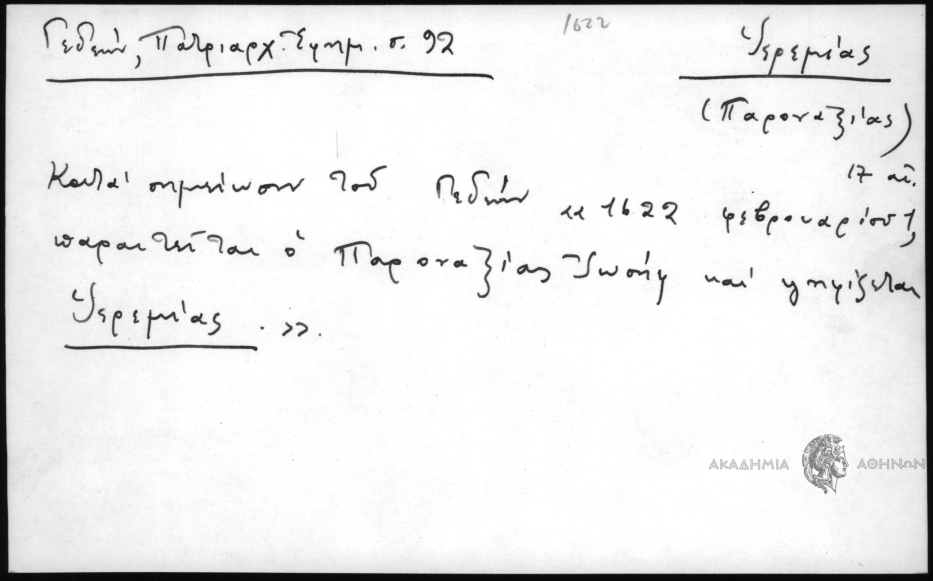 Γεδεών, Πατριαρχ. Ἐφημ. σ. 92
1622
Ἱερεμίας
(Παροναξίας)
17 αἰ.
Κατά σημείωσιν τοῦ Γεδεών «1622 φεβρουαρίου 1,
παραιτεῖται ὁ Παροναξίας Ἰωσήφ καί ψηφίζεται
Ἱερεμίας.».
ΑΚΑΔΗΜΙΑ ΑΘΗΝΩΝ